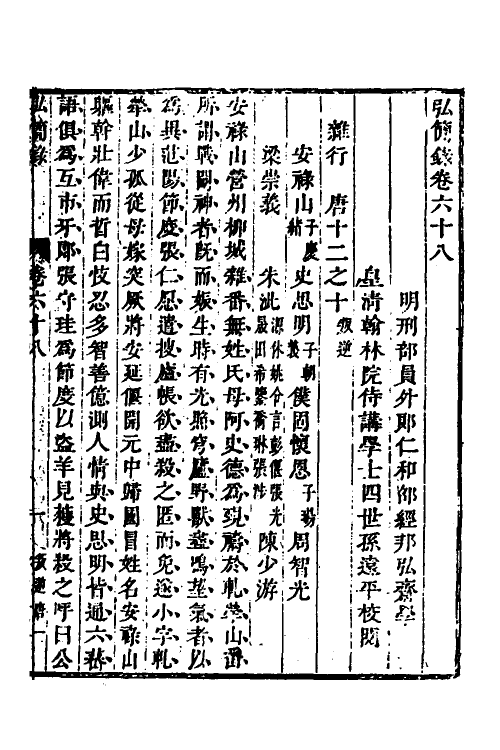 弘簡錄卷六十八
明刑部員外郎仁和邵經邦弘齋學
皇清翰林院侍講學士四世孫遠平校閱
雜行　唐十二之十　叛逆
安祿山子慶緒　史思明子朝義　僕固懷恩子瑒　周智光
梁崇義　朱泚源休姚令言彭偃張光晟田希鑒喬琳張涉　陳少游
安祿山營州柳城雜番無姓氏母阿史德為覡禱於軋犖山番
所謂戰鬭神者既而娠生時有光照穹廬野獸盡鳴望氣者以
為異范陽節度張仁愿遣搜廬帳欲盡殺之匿而免遂小字軋
犖山少孤從母嫁突厥將安延偃開元中歸國冒姓名安祿山
軀幹壯偉而晳白忮忍多智善億測人情與史思明皆通六蕃
語俱為互市牙郎張守珪為節度以盜羊見獲將殺之呼曰公
弘簡錄
卷六十八
叛逆
一